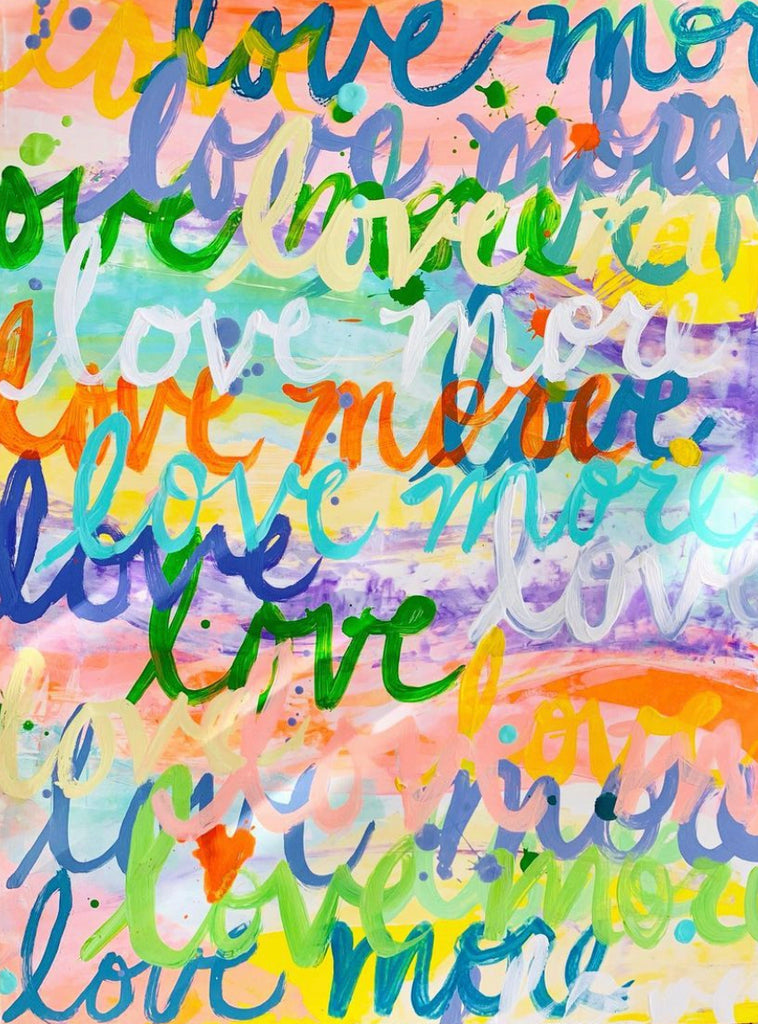 love love mor
love more
ove more love m
love more
love more love
love more
love love
love
love
love m
love more
love more
love more